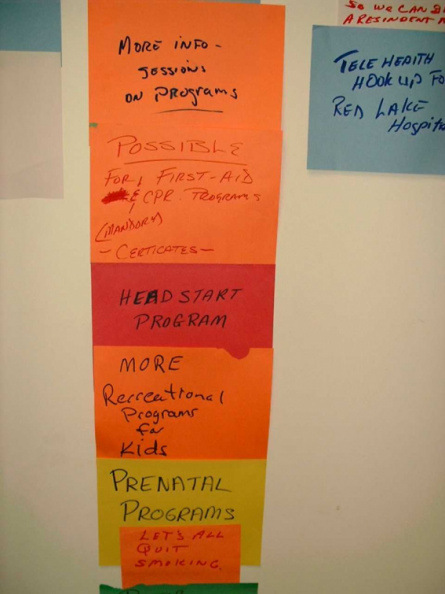 MORE INFO-
SESSIONS
ON PROGRAMS
POSSIBLE
FOR, FIRST-AID
& CPR. PROGRAMS
(MANDORY)
- CERTICATES -
HEADSTART
PROGRAM
MORE
Recreational
Programs
for
Kids
PRENATAL
PROGRAMS
LET'S ALL
QUIT
SMOKING.
SO WE CAN BE
A RESINDENT
TELE HEALTH
HOOK UP FO
RED LAKE
Hospita